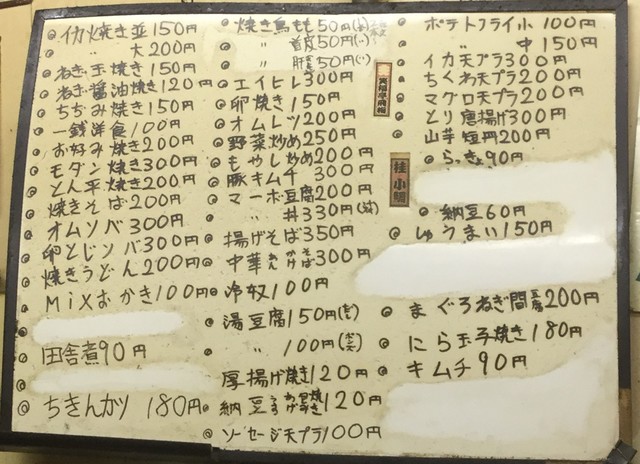 ◎イカ焼き並150円
〃 大200円
◎ねぎ玉焼き150円
◎ねぎ醤油焼き120円
◎ちぢみ焼き150円
◎一銭洋食100円
◎お好み焼き200円
◎モダン焼き300円
◎とん平焼き200円
◎焼きそば200円
◎オムソバ300円
◎卵とじソバ300円
◎焼きうどん200円
◎MiXおかき100円
◎田舎煮90円
◎ちきんカツ 180円
◎焼き鳥もも50円
〃 首皮50円
〃 肝50円
◎エイヒレ300円
◎卵焼き150円
◎オムレツ200円
◎野菜炒め250円
◎もやし炒め200円
◎豚キムチ 300円
◎マーボ豆腐200円
◎〃 丼330円
◎揚げそば350円
◎中華あんかけそば300円
◎冷奴100円
◎湯豆腐150円
◎〃 100円
◎厚揚げ焼き120円
◎納豆うすあげ包焼き120円
◎ソーセージ天プラ100円
◎ポテトフライ小 100円
◎〃 中 150円
◎イカ天プラ300円
◎ちくわ天プラ200円
◎マグロ天プラ200円
◎とり唐揚げ300円
◎山芋短冊200円
◎らっきょ90円
◎納豆60円
◎しゅうまい150円
◎まぐろねぎ間200円
◎にら玉子焼き180円
◎キムチ90円
桂小鯛